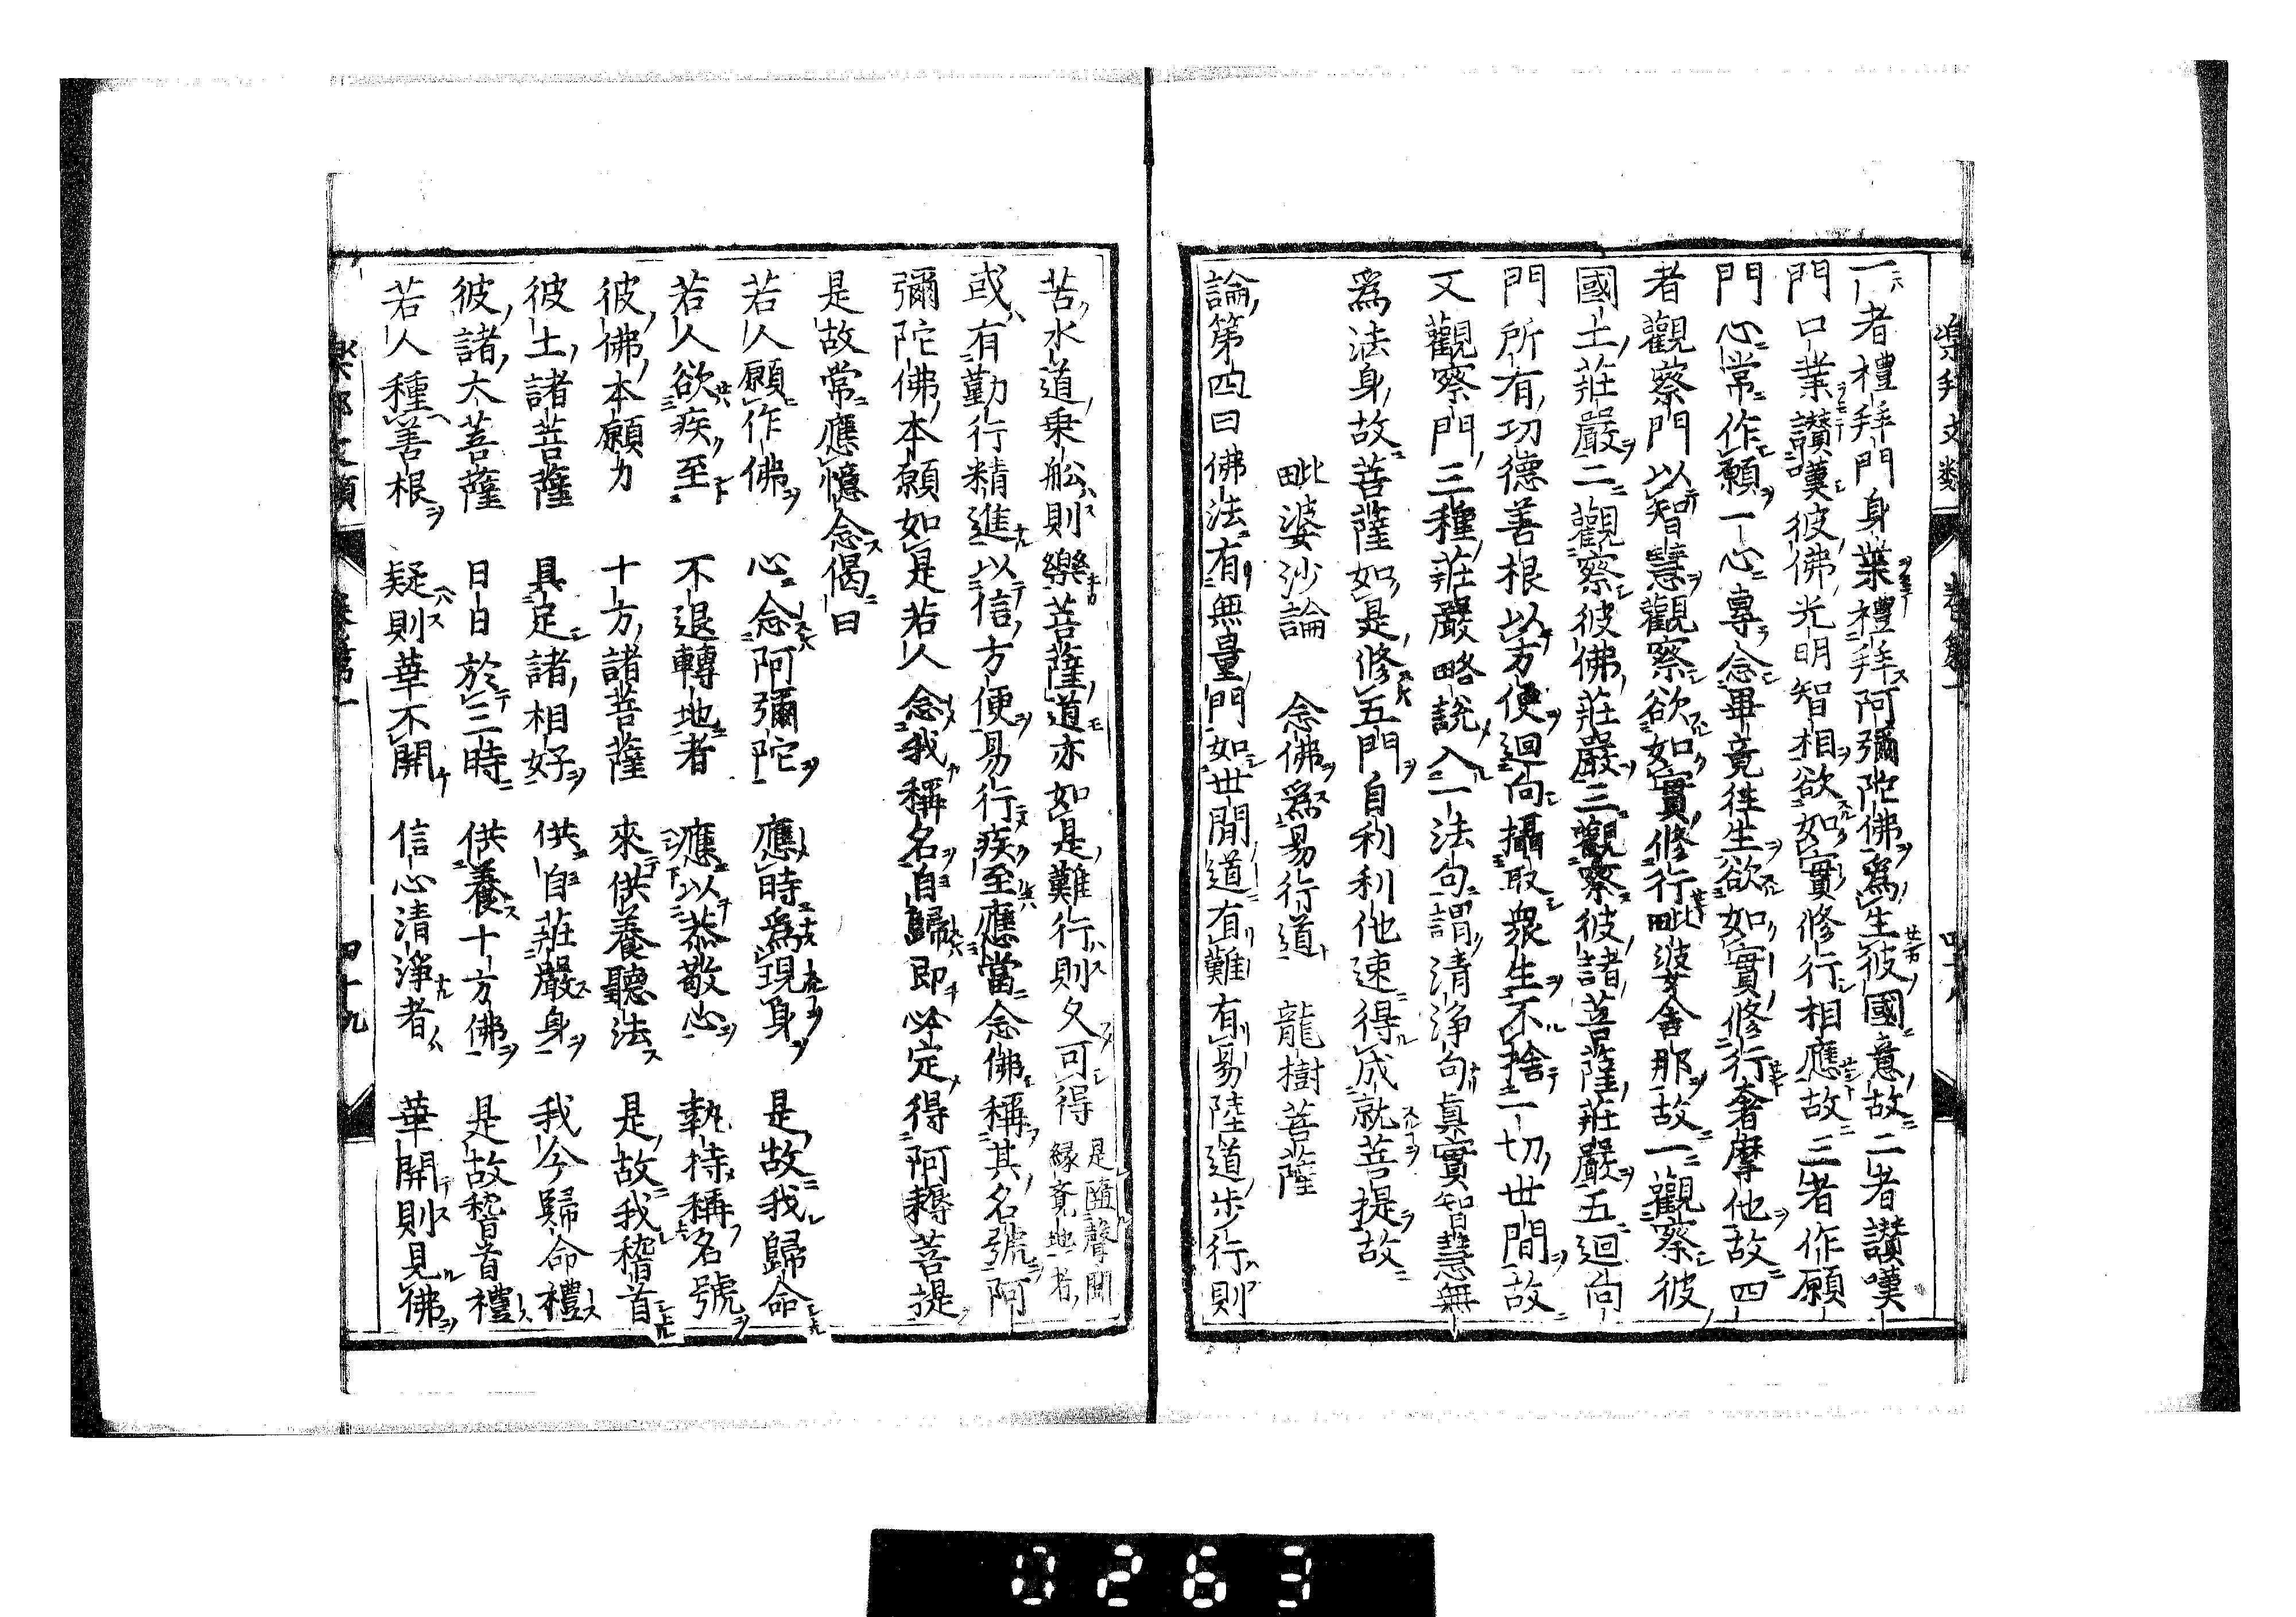 樂邦文類 卷第一 四十八
一者禮拜門身業禮拜阿彌陀佛爲生彼國意故二者讃嘆
門口業讃嘆彼佛光明智相欲如實修行相應故三者作願
門心常作願一心專念畢竟往生欲如實修行奢摩他故四
者觀察門以智慧觀察欲如實修行毗婆舍那故一觀察彼
國土莊嚴二觀察彼佛莊嚴三觀察彼諸菩薩莊嚴五迴向
門所有功德善根以方便迴向攝取衆生不捨一切世間故
又觀察門三種莊嚴略說入一法句謂清淨句真實智慧無
爲法身故菩薩如是修五門自利利他速得成就菩提故
毗婆沙論 念佛爲易行道 龍樹菩薩
論第四曰佛法有無量門如世間道有難有易陸道步行則
苦水道乗舩則樂菩薩道亦如是難行則久可得是隨聲聞縁覺地者
或有勤行精進以信方便易行疾至應當念佛稱其名號阿
彌陀佛本願如是若人念我稱名自歸即必定得阿耨菩提
是故常應憶念偈曰
若人願作佛 心念阿彌陀 應時爲現身 是故我歸命
若人欲疾至 不退轉地者 應以恭敬心 執持稱名號
彼佛本願力 十方諸菩薩 來供養聽法 是故我稽首
彼土諸菩薩 具足諸相好 供自莊嚴身 我今歸命禮
彼諸大菩薩 日日於三時 供養十方佛 是故稽首禮
若人種善根 疑則華不開 信心清淨者 華開則見佛
樂邦文類 卷第一 四十九
0263